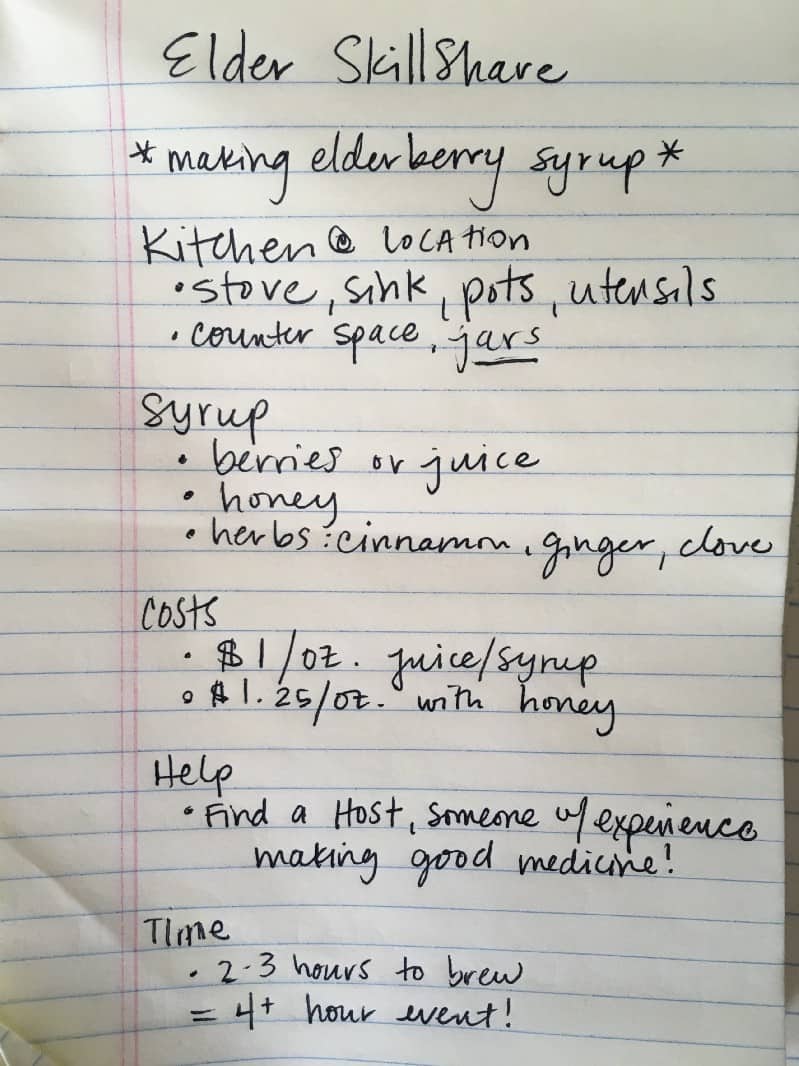 Elder SkillShare
*making elderberry syrup*
Kitchen @ LOCATION
• stove, sink, pots, utensils
• counter space, jars
Syrup
• berries or juice
• honey
• herbs: cinnamon, ginger, clove
COSTS
• $1/oz. juice/syrup
• $1.25/oz. with honey
Help
• Find a Host, someone w/ experience
making good medicine!
TIme
• 2-3 hours to brew
= 4+ hour event!